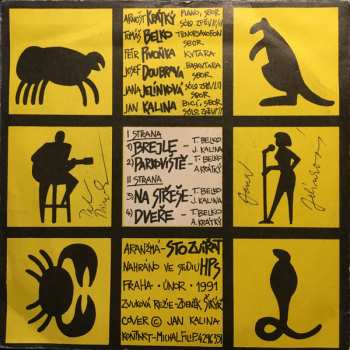 ARNOŠT KRÁTKÝ PIANO, SBOR
SÓLO ZPĚV II/1
TOMÁŠ BELKO TENORSAXOFON
SBOR
PETR PIVOŇKA KYTARA
JOSEF DOUBRAVA BASKYTARA
SBOR
JANA JELÍNKOVÁ SÓLO ZPĚV
SBOR
JAN KALINA BICÍ, SBOR
SÓLO ZPĚV
I STRANA
1) BREJLE - T. BELKO
J. KALINA
2) PARKOVIŠTĚ - T. BELKO
A. KRÁTKÝ
II STRANA
3) NA STŘEŠE - T. BELKO
J. KALINA
4) DVEŘE - T. BELKO
A. KRÁTKÝ
ARANŽMÁ - STO ZVÍŘAT
NAHRÁNO VE STUDIU HPS
PRAHA · ÚNOR · 1991
ZVUKOVÁ REŽIE - ZDENĚK ŠIKÝŘ
COVER © JAN KALINA
KONTAKT - MICHAL FILIP,